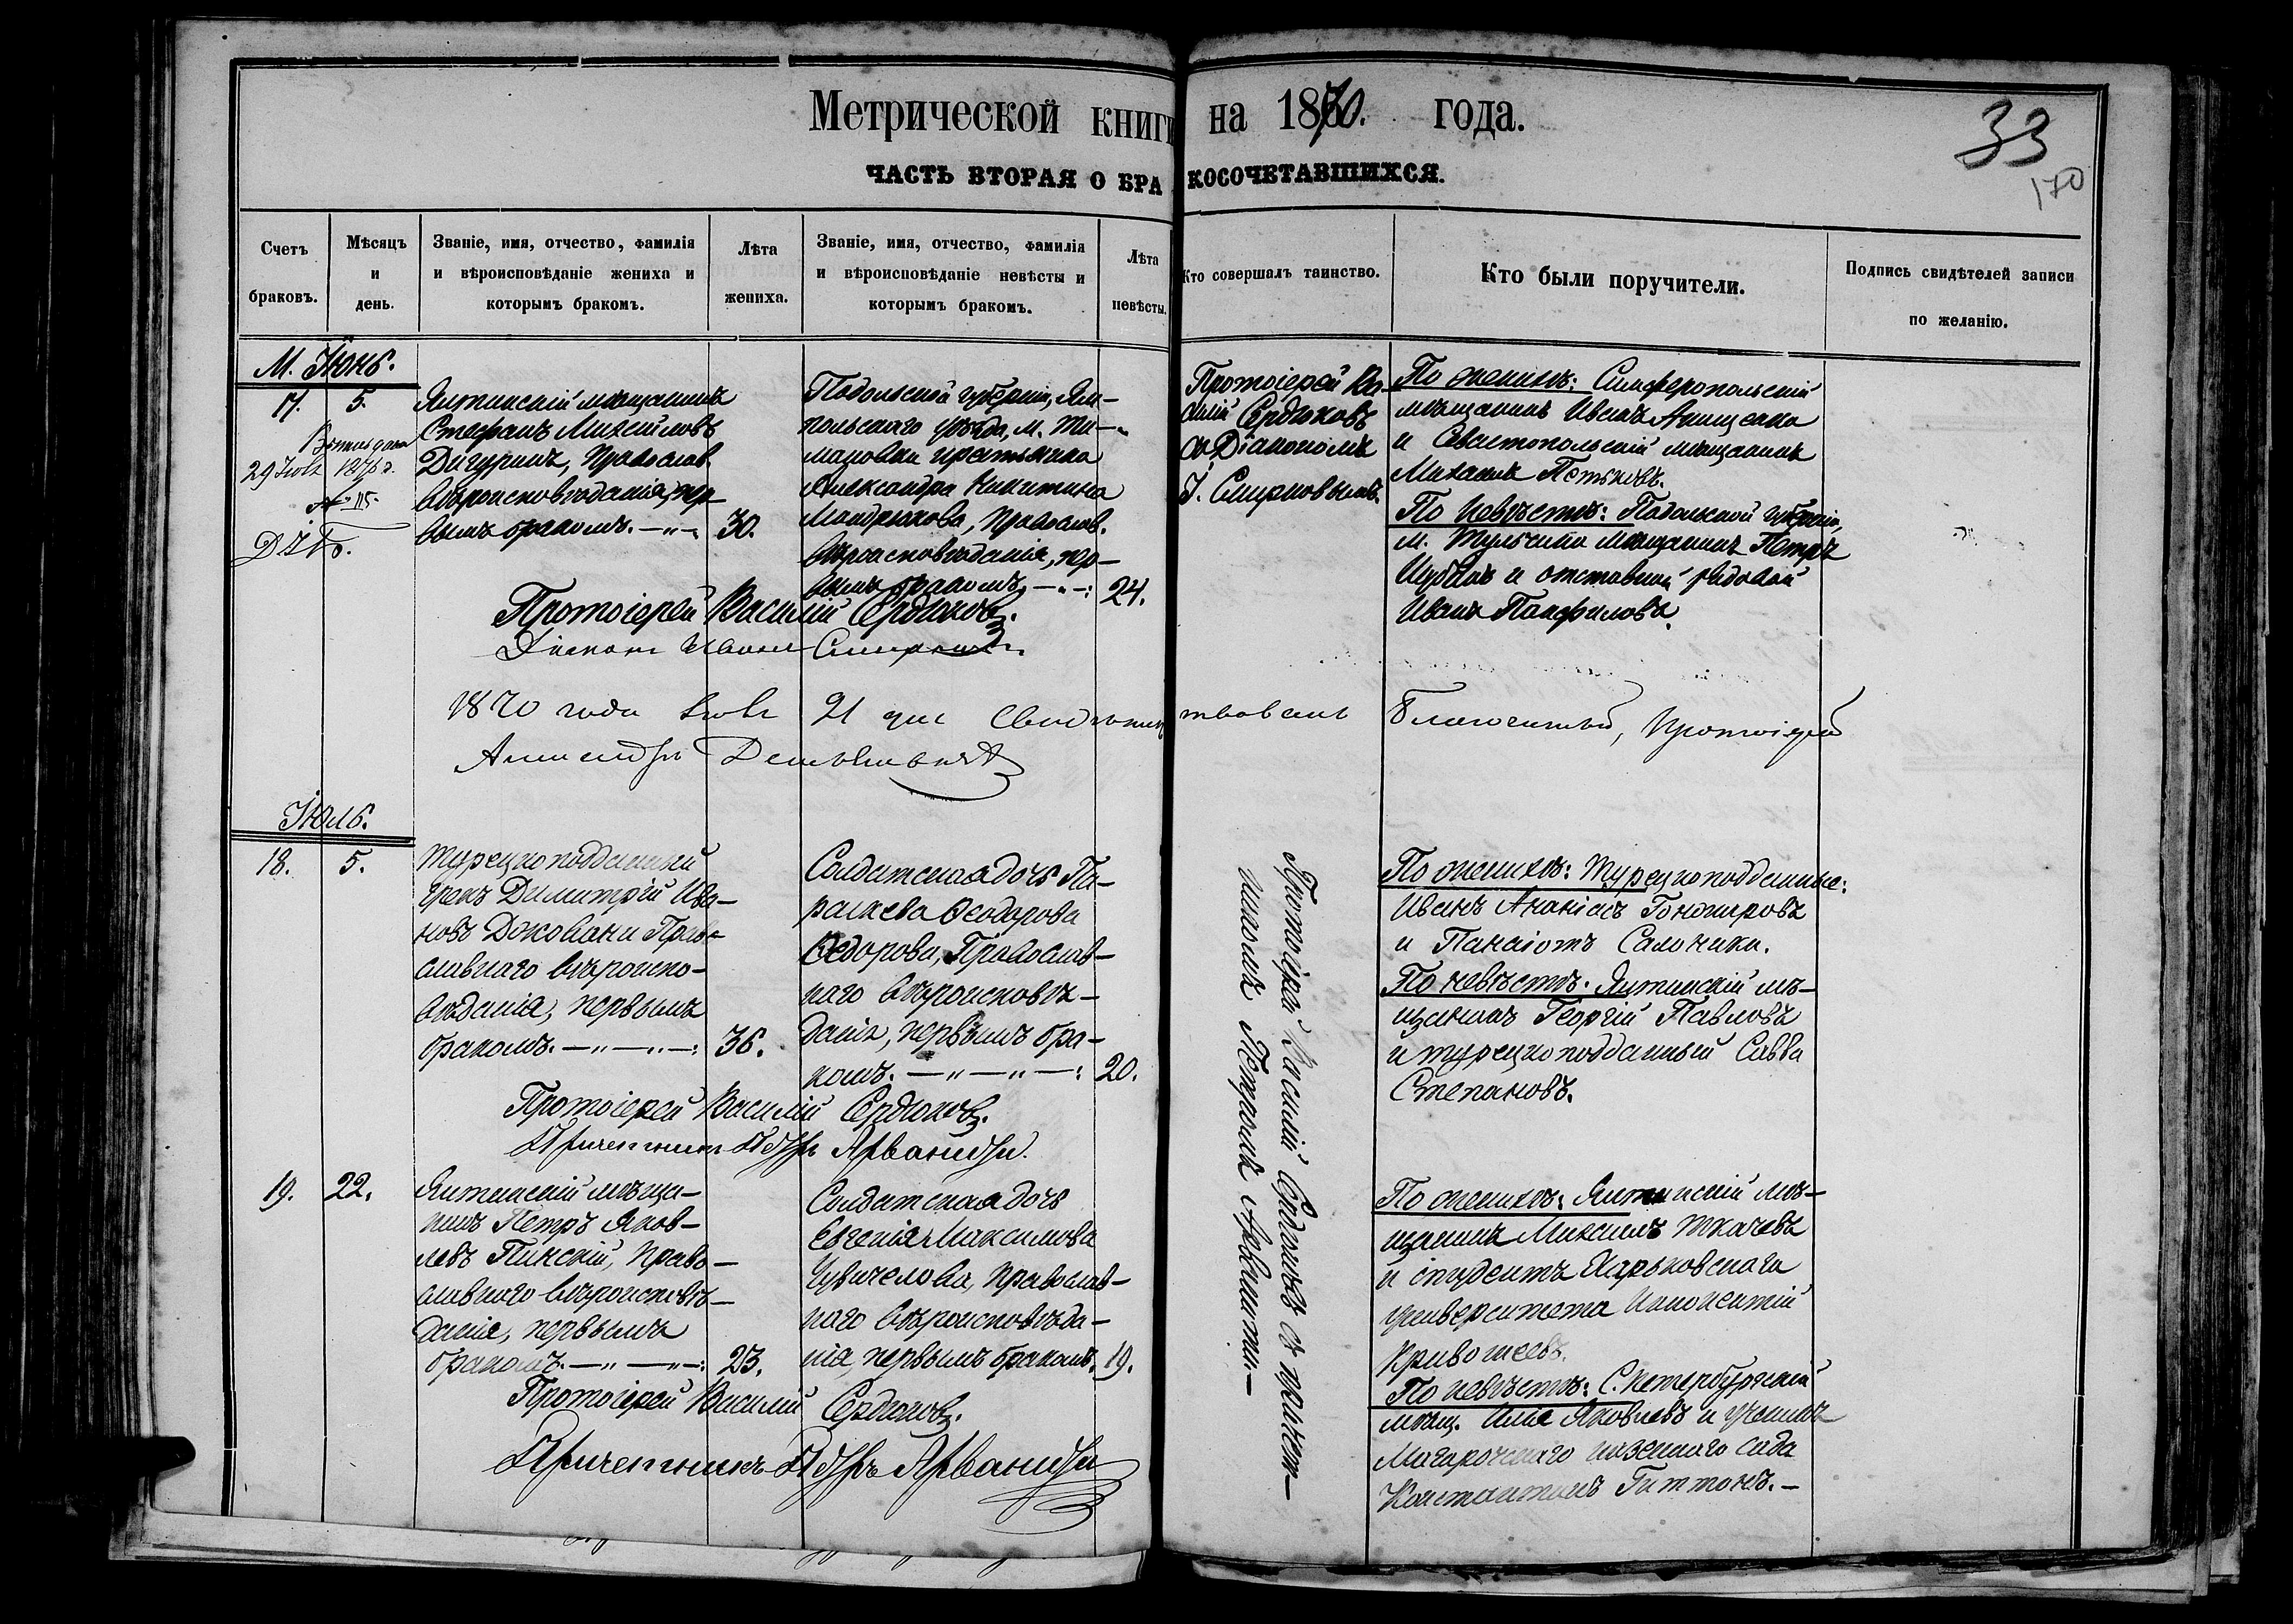 Метрической книги на 1870. года.
33
170
ЧАСТЬ ВТОРАЯ О БРАКОСОЧЕТАВШИХСЯ.
Счетъ браковъ.
Мѣсяцъ и день.
Званіе, имя, отчество, фамилія
и вѣроисповѣданіе жениха и
которымъ бракомъ.
Лѣта
жениха.
Званіе, имя, отчество, фамилія
и вѣроисповѣданіе невѣсты и
которымъ бракомъ.
Лѣта
невѣсты.
Кто совершалъ таинство.
Кто были поручители.
Подпись свидѣтелей записи
по желанію.
М. Іюнь.
17. 5.
29 Іюля 1876 г.
№ 115.
Ялтинскій мѣщанинъ
Стефанъ Михайловъ
Дигуринъ, Православ.
вѣроисповѣданія, пер-
вымъ бракомъ. —„—
30.
Подольской губерніи, Ям-
польскаго уѣзда, м. Ти-
мановки крестьянка
Александра Никитина
Мандрыкова, Православ.
вѣроисповѣданія, пер-
вымъ бракомъ. —„—:
24.
Протоіерей Ва-
силій Сердюковъ
съ Діакономъ
І. Смирновымъ.
По женихѣ: Симферопольскій
мѣщанинъ Иванъ
и Севастопольскій мѣщанинъ
Михаилъ Петьковъ.
По невѣстѣ: Подольской губерніи,
м. Тульчина мѣщанинъ Петръ
и отставной рядовой
Иванъ Панфиловъ.
Протоіерей Василій Сердюковъ.
Діаконъ Иванъ Смирновъ
1870 года Іюля 21 дня Свидѣтельствовалъ Благочинный, Протоіерей
Александръ Демьяновичъ
Іюль.
18. 5.
Турецкоподданный
грекъ Димитрій Ива-
новъ Джовани Право-
славнаго вѣроиспо-
вѣданія, первымъ
бракомъ. —„—„—:
36.
Солдатская дочь Па-
раскева Ѳеодорова
Ѳедорова, Православ-
наго вѣроисповѣ-
данія, первымъ бра-
комъ. —„—„—:
20.
Протоіерей Василій Сердюковъ съ причет-
никомъ Петромъ Арванити.—
По женихѣ: Турецкоподданные:
Иванъ Ананіасъ
и Панаіотъ Салоники.
По невѣстѣ. Ялтинскій мѣ-
щанинъ Георгій Павловъ
и турецкоподданный Савва
Степановъ.
Протоіерей Василій Сердюковъ.
Причетникъ Петръ Арваниди.
19. 22.
Ялтинскій мѣща-
нинъ Петръ Яков-
левъ Пинскій, Право-
славнаго вѣроисповѣ-
данія, первымъ
бракомъ. —„—„—:
23.
Солдатская дочь
Евгенія Максимова
Чувичелова, Православ-
наго вѣроисповѣда-
нія, первымъ бракомъ.
19.
По женихѣ: Ялтинскій мѣ-
щанинъ Михаилъ Ткачевъ
и студентъ Харьковскаго
университета Инокентій
Кривошеевъ.
По невѣстѣ: С. Петербургскій
мѣщ. Илья Яковлевъ и ученикъ
Магарочскаго казеннаго сада
Константинъ Гиттонъ.—
Протоіерей Василій Сердюковъ.
Причетникъ Петръ Арваниди